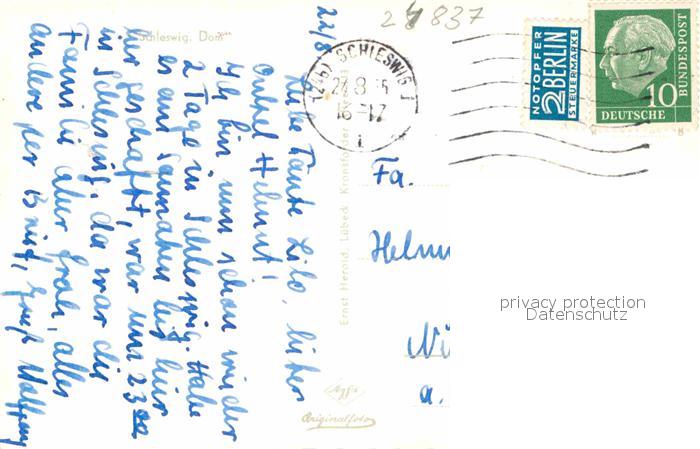 24837
Schleswig, Dom
22/8
Liebe Tante Lilo, lieber
Onkel Helmut!
Ich bin nun schon wieder
2 Tage in Schleswig. Habe
es am Sonnabend bis hier
her geschafft, war um 23⁰⁰
in Schleswig, da war die
Fanni aber froh, alles
andere per Brief, Gruß Wolfgang
Ernst Herold, Lübeck Kronsforder
Agfa
Originalfoto
(24b) SCHLESWIG 1
22.8.
16-17
NOTOPFER
2 BERLIN
STEUERMARKE
DEUTSCHE
BUNDESPOST
10
Fa.
Helmu
Ni
a.
privacy protection
Datenschutz